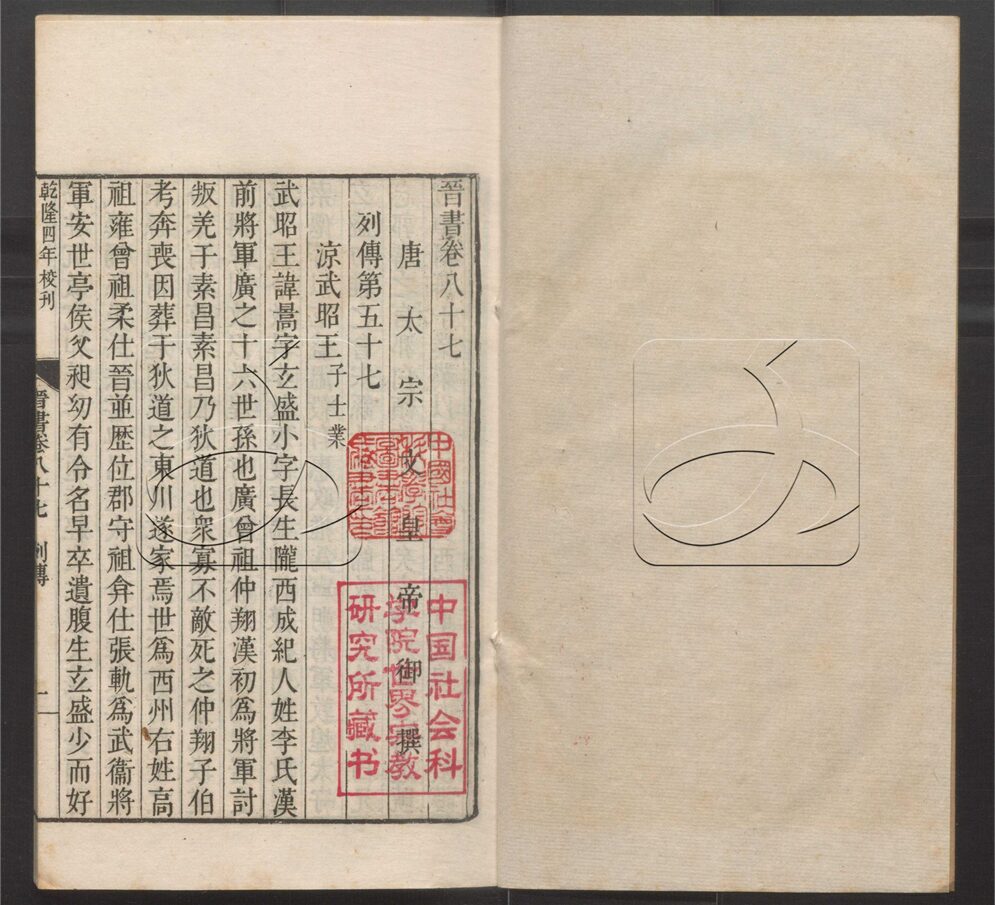 晉書卷八十七
唐太宗文皇帝御撰
列傳第五十七
涼武昭王子士業
武昭王諱暠字玄盛小字長生隴西成紀人姓李氏漢
前將軍廣之十六世孫也廣曾祖仲翔漢初為將軍討
叛羌于素昌素昌乃狄道也衆寡不敵死之仲翔子伯
考奔喪因葬于狄道之東川遂家焉世爲西州右姓高
祖雍曾祖柔仕晉並歴位郡守祖弇仕張軌爲武衞將
軍安世亭侯父昶幼有令名早卒遺腹生玄盛少而好
乾隆四年校刊
晉書卷八十七 列傳 一
中国社会科
学院世界宗教
研究所藏书